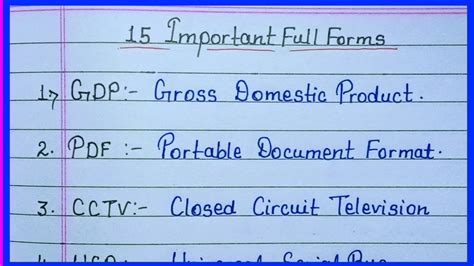 15 Important Full Forms
1⟩ GDP:- Gross Domestic Product.
2. PDF :- Portable Document Format.
3. CCTV:- Closed Circuit Television